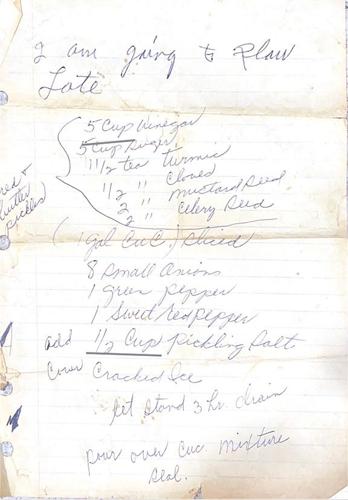 I am going to Plow
Late
5 Cup Vinegar
5 Cup Suger
1 1/2 tea Turmic
1/2 " Cloves
2 " Mustard Seed
2 " Celery Seed
Bread &
butter
pickles
(1 gal Cuc.) Sliced
8 Small Onions
1 green pepper
1 Sweet red pepper
add 1/2 Cup Pickling Salt
Cover Cracked Ice
let stand 3 hr. drain
pour over Cuc mixture
Seal.